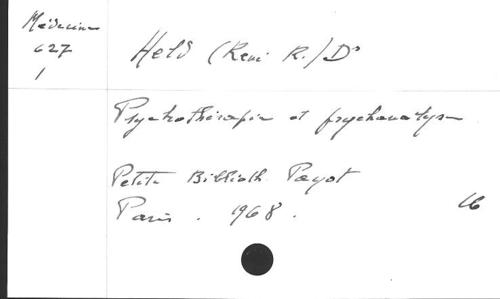 Médecine
627
1
Held (René R.) Dr
Psychothérapie et psychanalyse
Petite Biblioth. Payot
Paris . 1968 .
16